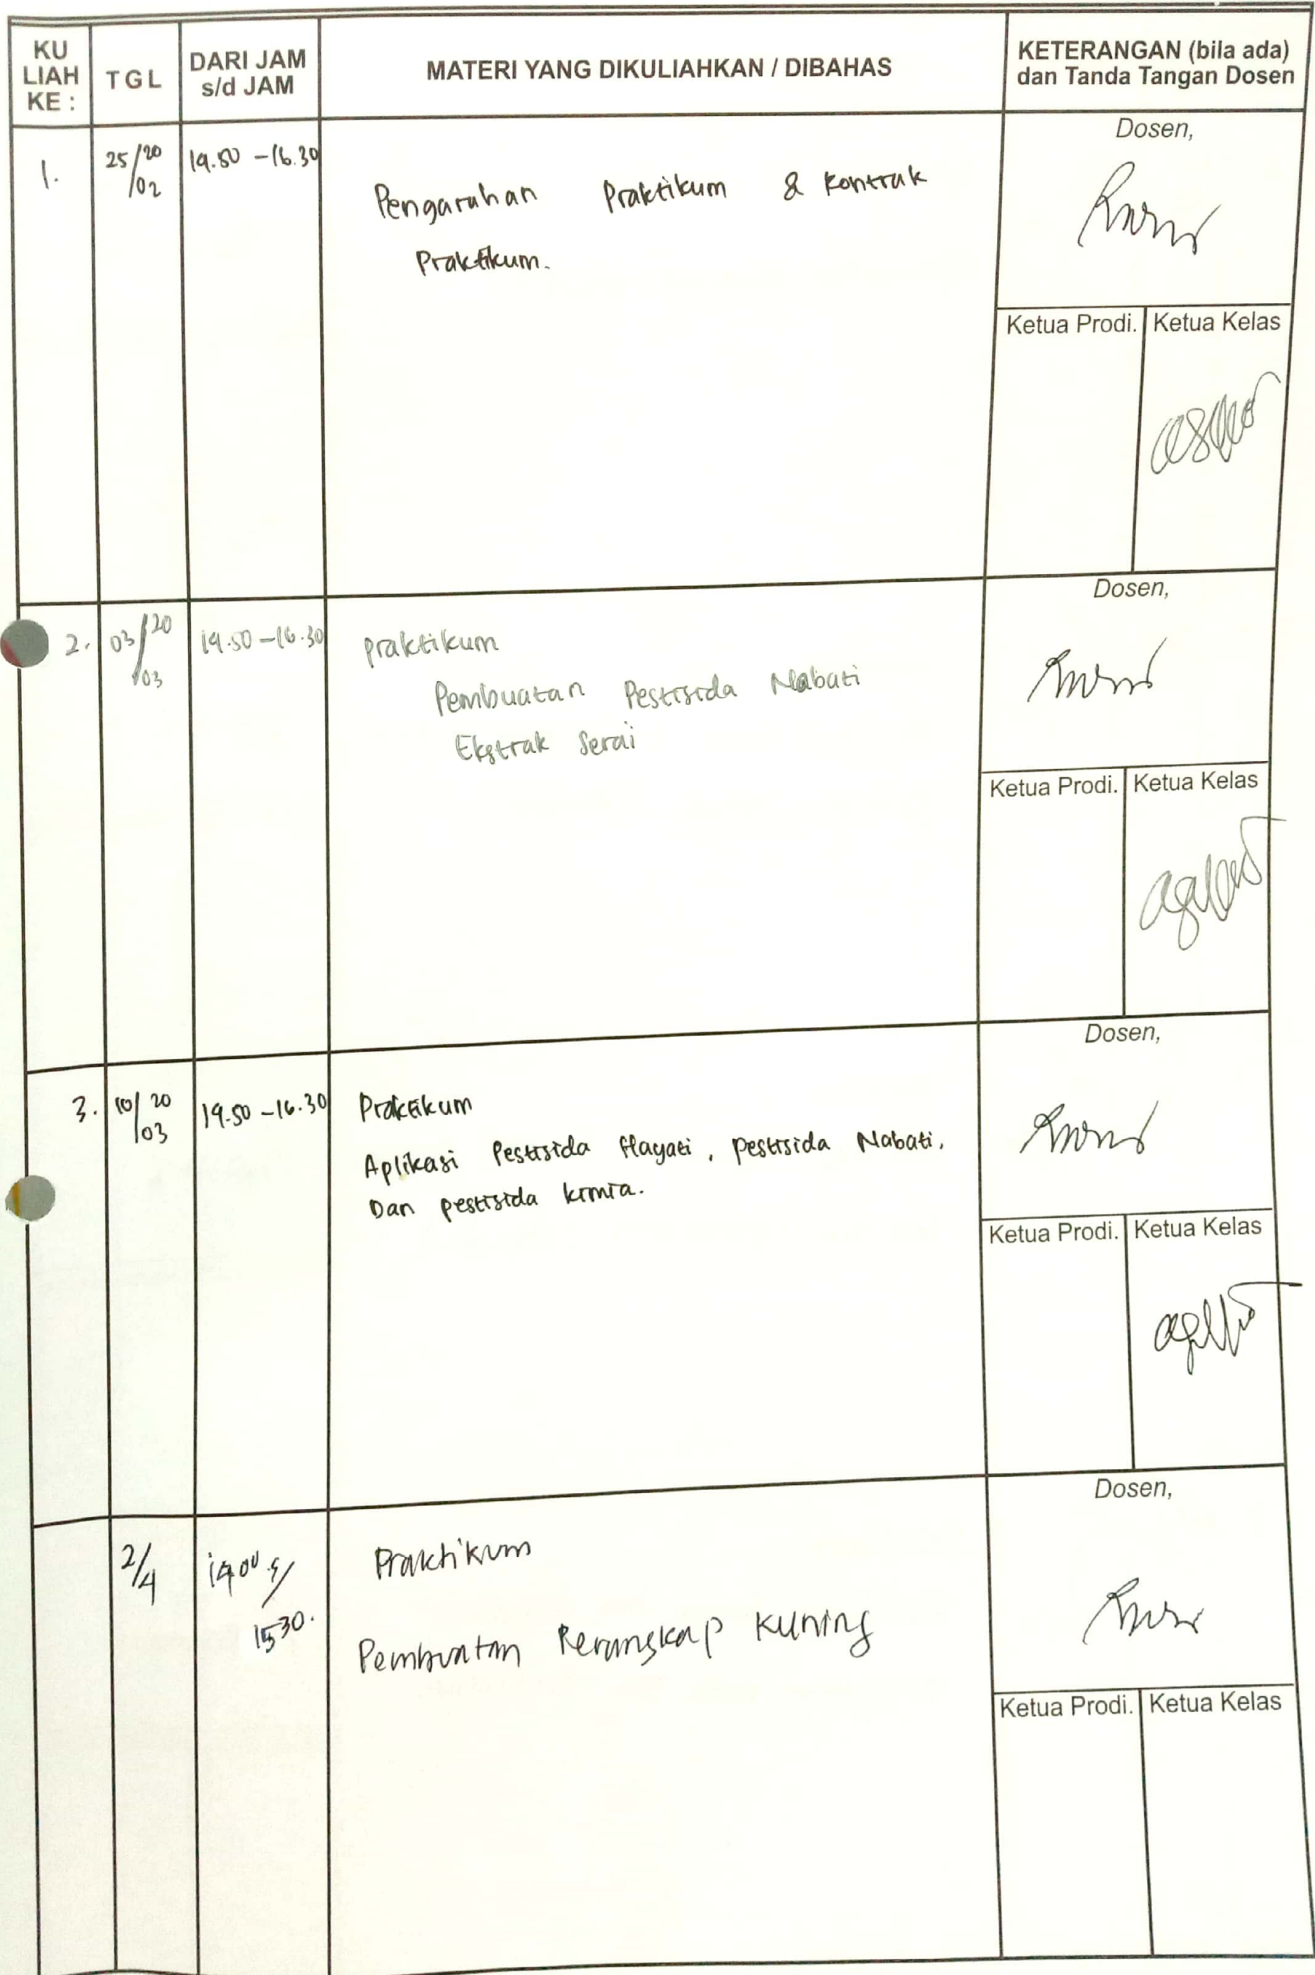 KU
LIAH
KE :
TGL
DARI JAM
s/d JAM
MATERI YANG DIKULIAHKAN / DIBAHAS
KETERANGAN (bila ada)
dan Tanda Tangan Dosen
1.
25/20
/02
14.50 - 16.30
Pengarahan Praktikum & Kontrak
Praktikum.
Dosen,
Ketua Prodi. Ketua Kelas
2.
03/20
/03
14.50 - 16.30
Praktikum
Pembuatan Pestisida Nabati
Ekstrak Serai
Dosen,
Ketua Prodi. Ketua Kelas
3.
10/20
/03
14.50 - 16.30
Praktikum
Aplikasi Pestisida Hayati, pestisida Nabati,
Dan pestisida kimia.
Dosen,
Ketua Prodi. Ketua Kelas
2/4
1400 s/
1530.
Praktikum
Pembuatan Perangkap Kuning
Dosen,
Ketua Prodi. Ketua Kelas